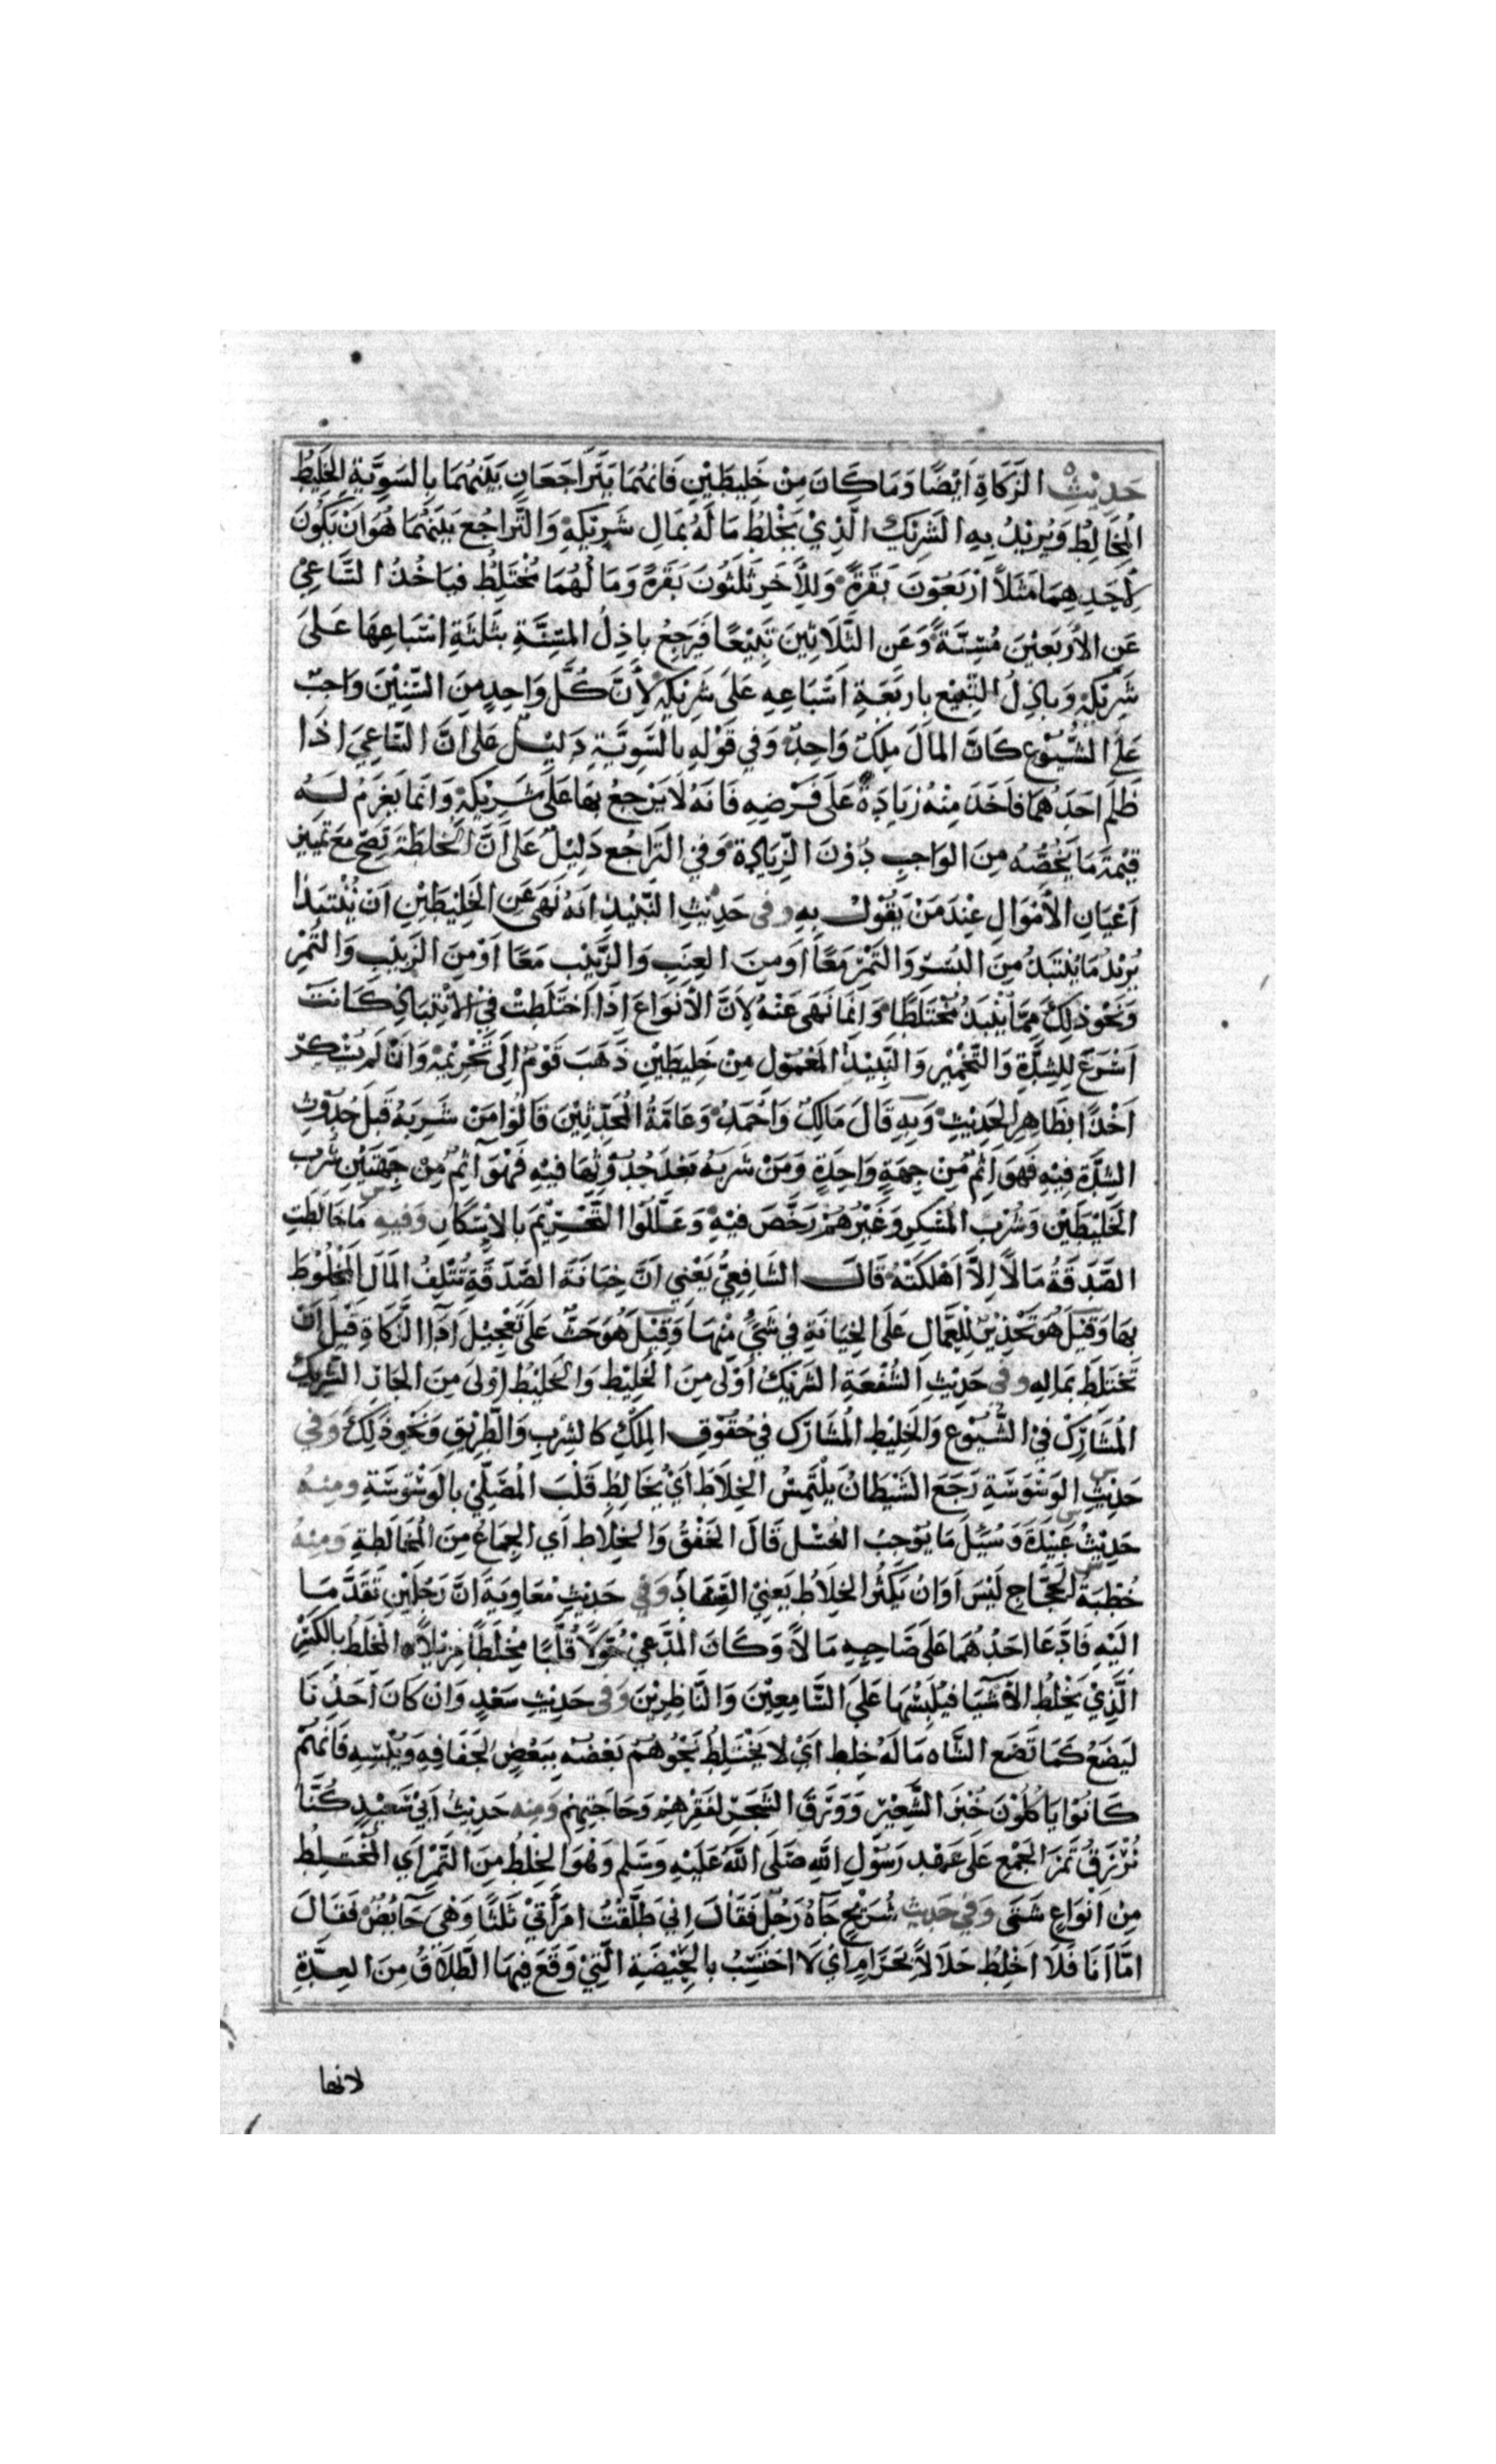 حَدِيْثِ الزَكَاةِ اَيْضًا وَمَا كَانَ مِنْ خَلِيطَيْنِ فَانهُمَا يَتَرَاجَعَانِ بَيْنَهُمَا بِالسَوِيَّةِ الخَلِيْطُ
المُخَالِطُ وَيُرِيْدُ بِهِ الشَرِيْكَ الَّذِيْ يَخْلِطُ مَا لَهُ بمَالِ شَرِيْكِهْ وَالتَّرَاجُع بَيْنَهُمَا هُوَ اَنْ يَكُونَ
لِأَحَدِهِمَا مَثَلاً اَرْبَعُوْنَ بَقَرَةً وَللأَخَرِ ثَلثُونَ بَقَرَةً وَمَا لُهُمَا مُخْتَلِطُ فيَاخُذُ السَّاعِيْ
عَنِ الأَرْبَعِيْنَ مُسِنَّةً وَعَنِ الثَّلَاثِينَ تَبِيْعًا فَيَرجِعُ باذِلُ المسِنَّةِ بثَلثَةِ اسْبَاعِهَا عَلَى
شَرِيْكِهْ وَبَاذِلُ التَبِيْعِ بِاربَعَةِ اَسْبَاعِهِ عَلَى شَرِيْكِهْ لأَنَّ كُلَّ وَاحِدٍ مِنَ السِّنِيْنَ وَاجِبٌ
عَلَى الشُّيُوْعِ كَانَّ المَالَ مِلكٌ وَاحِدٌ وَفي قَوْلِهِ بالسَّوِيَّةِ دَلِيْلٌ عَلى اَنَّ السَّاعِيَ اذَا
ظَلَمَ اَحَدَهُمَا فَاَخَذَ مِنْهُ زِيَادَةً عَلَى فَرْضِهِ فَانَهُ لَا يَرْجِعُ بهَا عَلَى شَرِيْكِهْ وَانمَا يَغْرَمُ لَهُ
قِيْمَةَ مَا يَخُصُّهُ مِنَ الوَاجِبِ دُوْنَ الزِّيَادِةْ وَفي التَرَاجُعِ دَلِيْلٌ عَلى اَنَّ الخُلطَةَ تَصِحُّ مَعَ تميِيز
اَعْيَانِ الأَمْوَالِ عِنْدَ مَنْ يَقُوْلُ بِهِ وفى حَدِيْثِ النَّبِيْذِ اَنهُ نَهَى عَنِ الخَلِيْطَيْنِ اَن يُنْتَبَذَا
يُرِيْدُ مَا يُنْتَبَذُ مِنَ البُسْرِ وَالتَمْرِ مَعًا اَو مِنَ العِنَبِ وَالزَّبِيْبِ مَعًا اَوْ مِنَ الزَبِيْبِ وَالتَّمْرِ
وَنَحْوِ ذلِكَ مِمَّا يُنْبَذُ مُخْتَلَطًا وَانمَا نَهَى عَنْهُ لأَنَّ الأَنَوَاعَ اِذَا اَخْتَلَطِتْ فِيْ الانْتِبَاذِ كَانَتْ
اَسْرَعَ لِلشِدَّةِ وَالتَّخْمِيْرِ وَالنَّبِيْذُ المَعْمُوْل مِنْ خَلِيطَيْنِ ذَهَبَ قَوْمٌ اِلَى تَحْرِيْمِهْ وَاَنْ لَم يُسْكِرْ
اَخْذًا بظَاهِرِ الحَدِيْثِ وَبِهِ قَالَ مَالِكٌ وَاَحْمَدُ وَعَامَّةُ المُحَدِّثِيْنَ قَالُوا مَنْ شَرِبَهُ قَبلَ حُدُوْثِ
الشِدَّةِ فِيْهِ فَهوَ اٰثِمٌ مِنْ جِهَةٍ وَاحِدَةٍ وَمَنْ شَرِبَهُ بَعْدَ حُدُوْثِهَا فيْهِ فَهْوَ آثِمٌ مِنْ جِهَتَيْنِ شُرْبِ
الخَلِيْطَيْنِ وَشُرْبِ المسْكِرِ وَغَيْرُهُمْ رَخَّصَ فيْهِ وَعَلَّلُوْا التَّحْرِيْمَ بالإِسْكَارِ وَفيهِ مَا خَالَطَتِ
الصَّدَقَةُ مَالاً اِلاَّ اَهْلَكَتْهُ قَالَ الشَّافِعِيُّ يَعْنِي اَنَّ خِيَانَةَ الصَّدَقَةِ تُتْلِفُ المَالَ المَخْلُوْطَ
بهَا وَقيْلَ هُوَ تَحْذِيْرٌ لِلعُمَّالِ عَلَى الخِيَانَةِ فِي شَيْءٍ مِنْهَا وَقِيْلَ هُوَ حَثٌّ عَلَى تَعْجِيْلِ اَدَآ الزَّكَاةِ قَبْلَ اَنْ
تَخْتَلِطَ بمَالِهِ وفي حَدِيْثِ الشُفْعَةِ الشَرِيْكُ اَوْلَى مِنَ الخَلِيْطِ وَالخَلِيْطُ اوْلَى مِنَ الجَارِ الشَّرِيْكُ
المُشَارِكُ فيْ الشُّيُوْعِ وَالخَلِيْطُ المُشَارِكُ في حُقُوْقِ المِلكِ كالشِربِ وَالطَّرِيْقِ وَنَحْوِ ذَلِكَ وَفي
حَدِيْثِ الوَسْوَسَةِ رَجَعَ الشَيْطَانُ يَلْتَمِسُ الخِلاَطَ اَيْ يُخَالِطُ قَلْبَ المُصَلِّيْ بالوَسْوَسَةِ ومِنْهُ
حَدِيْثُ عَبِيْدَةَ وَسُئِلَ مَا يُوْجِبُ الغُسْلَ قَالَ الخَفْقُ وَالخِلَاط اَي الجِمَاعُ مِنَ المُخَالَطَةِ وَمِنْهُ
خُطْبَةُ الحَجَّاجِ لَيْسَ اَوَانُ يَكْثُرُ الخِلَاطُ يَعْنِيْ السِّفَادَ وَفِي حَدِيْثِ مُعَاوِيَةَ اَنَّ رَجُلَيْنِ تَقَدَّمَا
اليْهِ فَادَّعَا احَدُهُمَا عَلى صَاحِبِهِ مَا لاً وَكَانَ المُدَّعِيْ حُوَّلاً قُلَّبًا مِخْلَطًا مِزْيلاً المخْلَطُ بالكَسْرِ
الَّذِيْ يَخْلِطُ الأَشْيَا فيُلبِسُهَا عَلَى السَّامِعِيْنَ وَالنَّاظِرِيْنَ وَفى حَدِيْثِ سَعْدٍ وَاِنْ كَانَ اَحَدُنَا
لَيَضَعُ كَمَا تَضَع الشَاه مَا لَهُ خِلط اَيْ لا يَخْتَلِطُ نَجْوُهُمْ بَعْضُهُ بِبَعْضٍ لجَفَافِهِ وَيُبْسِهِ فَانهُمْ
كَانُوْا يَاكُلُوْنَ خُبْزَ الشَّعِيْرِ وَوَرَقَ الشَّجَرِ لفَقْرِهِمْ وَحَاجَتِهِمْ وَمِنه حَدِيْثُ اَبِيْ سَعِيْدٍ كُنَّا
نُرْزَقُ تَمْرَ الجَمْعِ عَلَى عَهْدِ رَسُوْلِ اللّهِ صَلَى اللّهُ عَلَيْهِ وَسَلم وَهْوَ الخِلْطُ مِنَ التَمْرِ اَي المُخْتَلِطُ
مِنْ اَنْوَاعٍ شَتَى وَفي حَدِيث شُرَيْحٍ جَآهُ رَجُلٌ فَقَالَ اِنِي طَلَّقْتُ امْرَأَتِيْ ثَلثًا وَهْيَ حَآيُضٌ فَقَالَ
امّا اَنَا فَلَا اَخْلِطُ حَلَالاً بحَرَامٍ اَيْ لَا احَتَسِبُ بالحَيْضَةِ الَّتِيْ وَقَعَ فِيهَا الطَّلَاقُ مِنَ العِدَّةِ
لانها